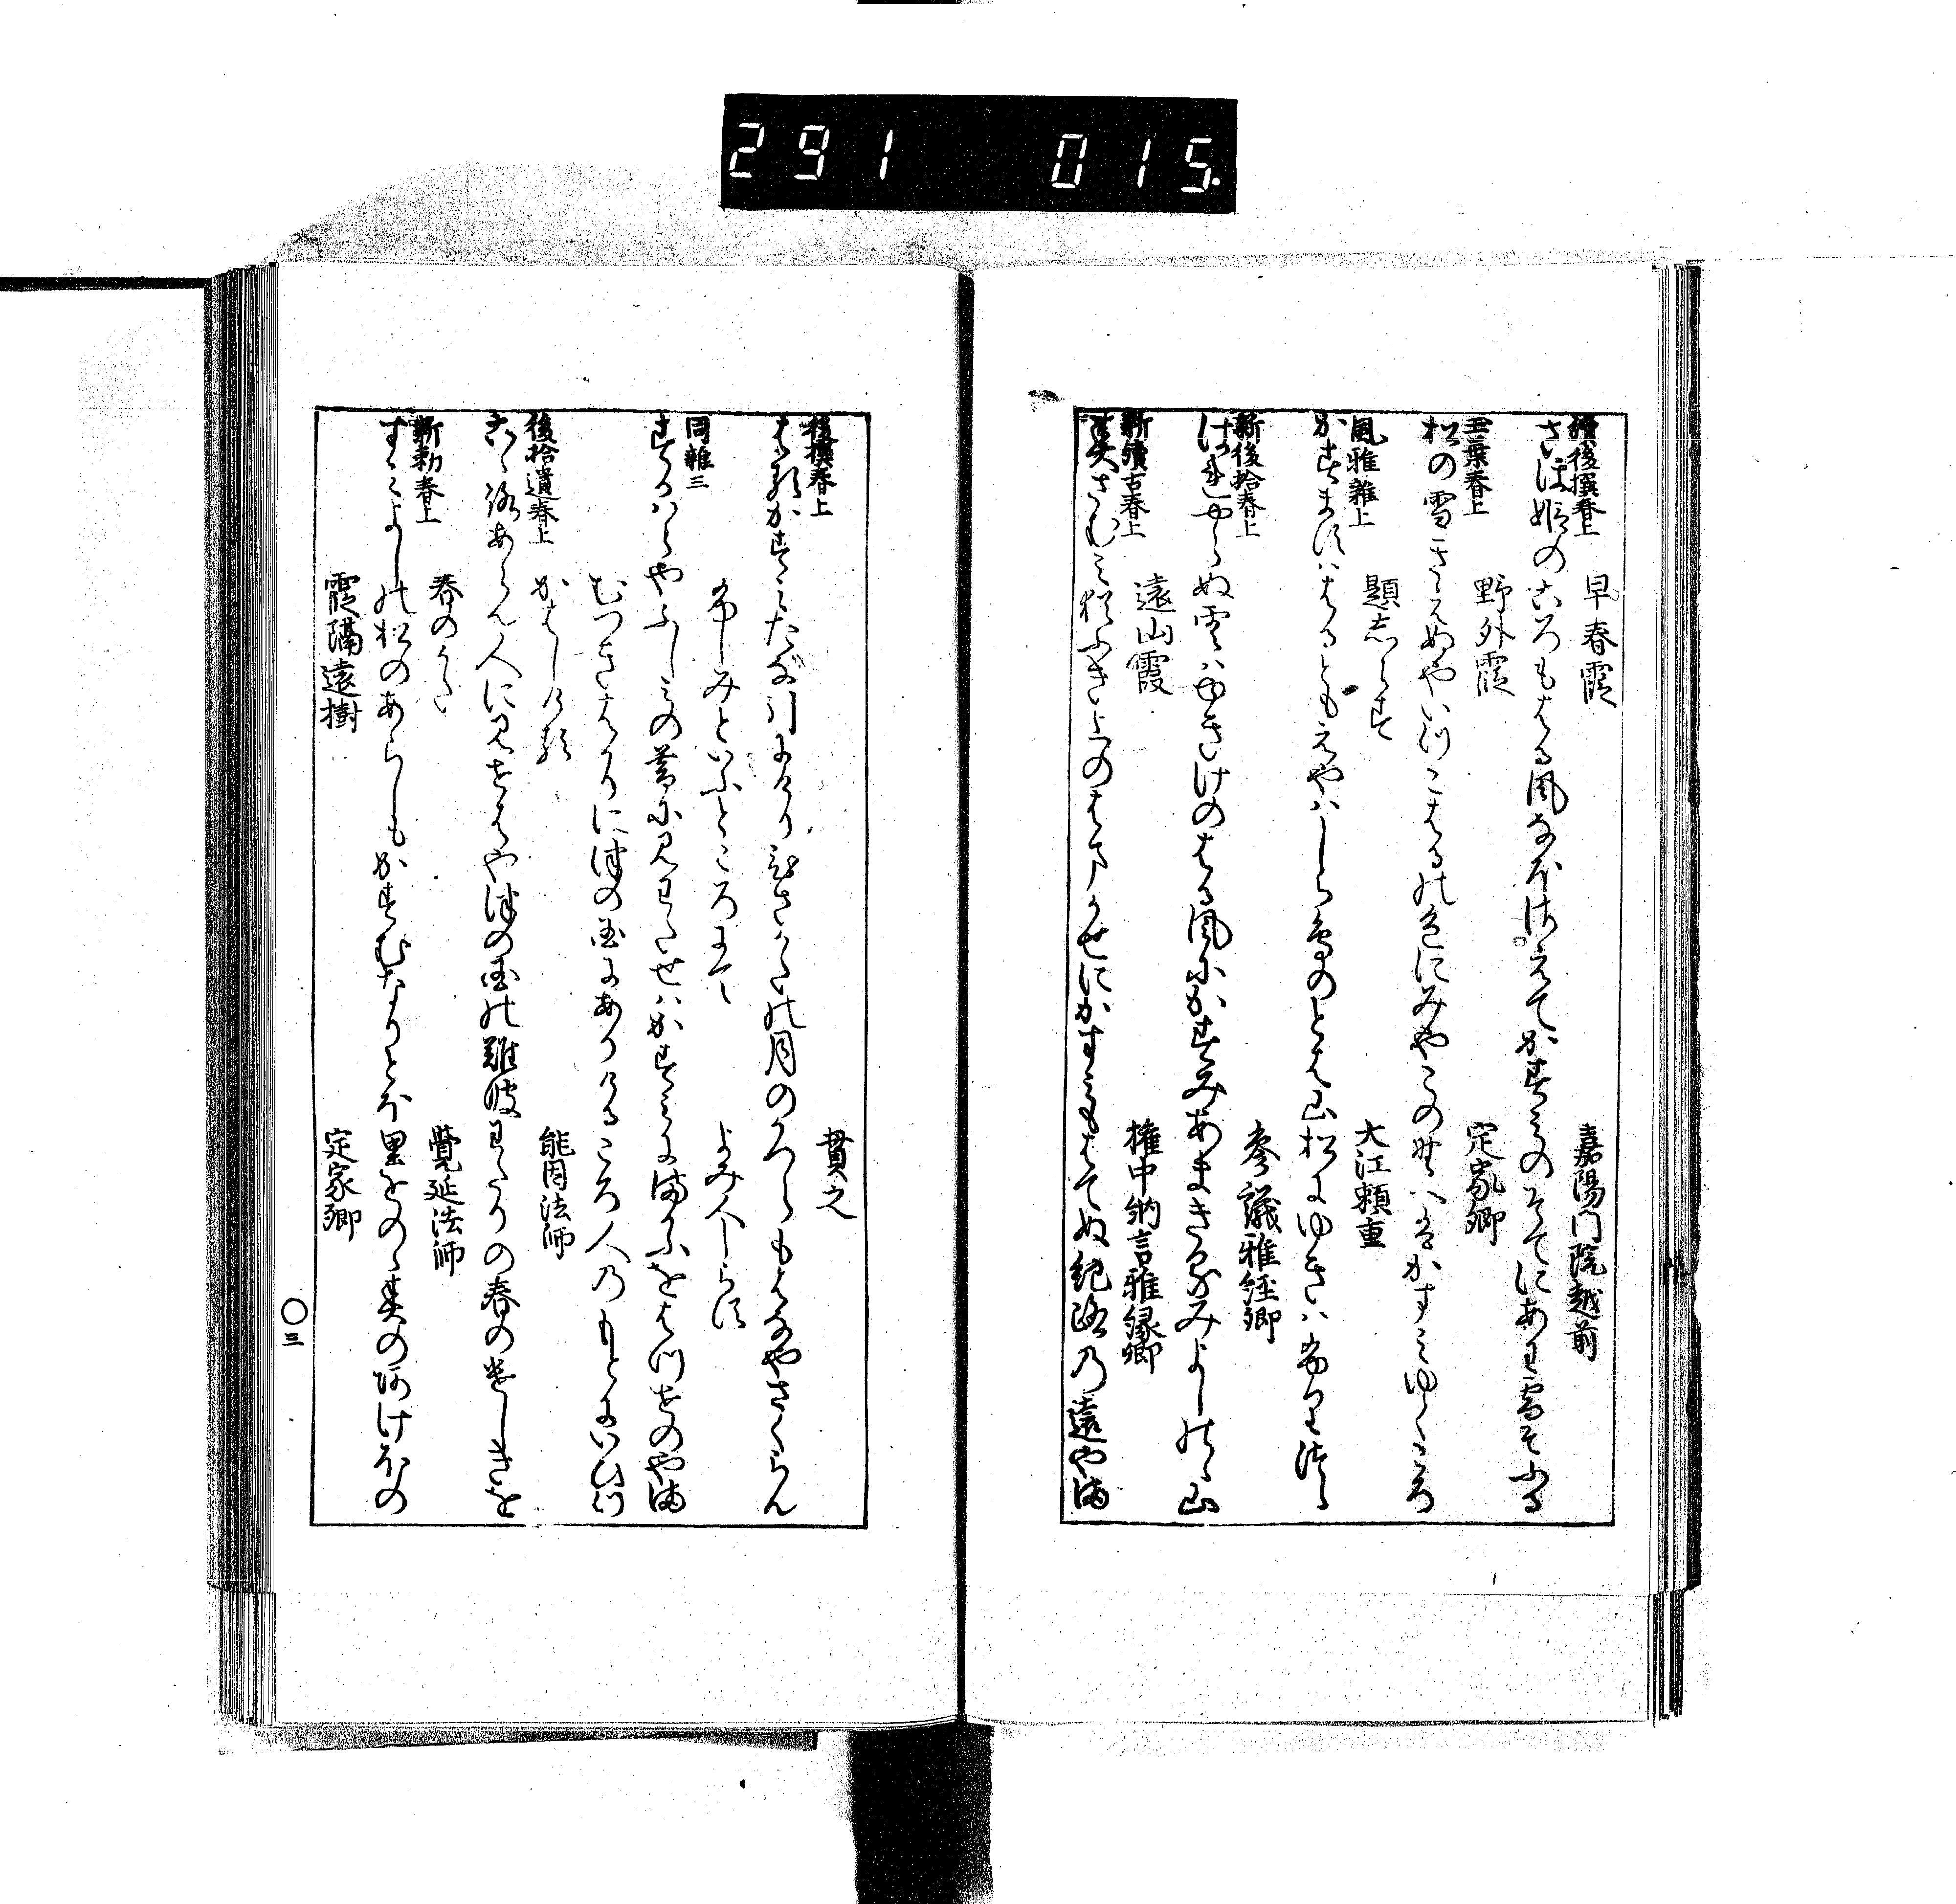 續後撰春上 早春霞 嘉陽門院越前
さほ姫のころもはる風なほさえてかすみのそてにあわ雪そふる
玉葉春上 野外霞 定家卿
松の雪きえぬやいつこはるの色にみやこの野へはかすみゆくころ
風雅雜上 題志らす 大江頼重
かすますははるともえやはしら鳥のとは山松にゆきはふりつゝ
新後拾春上 参議雅経卿
はれやらぬ雲はゆきけのはる風にかすみあまきるみよしのゝ山
新續古春上 遠山霞 権中納言雅縁卿
さむみ猶ふき上のはまかせにかすみもはてぬ紀路乃遠やま
後撰春上 貫之
はるかすみたな引にけりひさかたの月のかつらもはなやさくらん
同雜三 ふしみといふところにて よみ人しらす
すかはらやふしみの暮に見わたせはかすみにまかふをはつせのやま
むつきはかりに津の国にありけるころ人のもとにいひつ
後拾遺春上 かはしける 能因法師
こゝろあらん人に見せはや津の国の難波わたりの春のけしきを
新勅春上 春のうた 覺延法師
すみよしの松のあらしもかすむなりとほ里をのゝ春のあけほの
霞隔遠樹 定家卿
○三
291 015